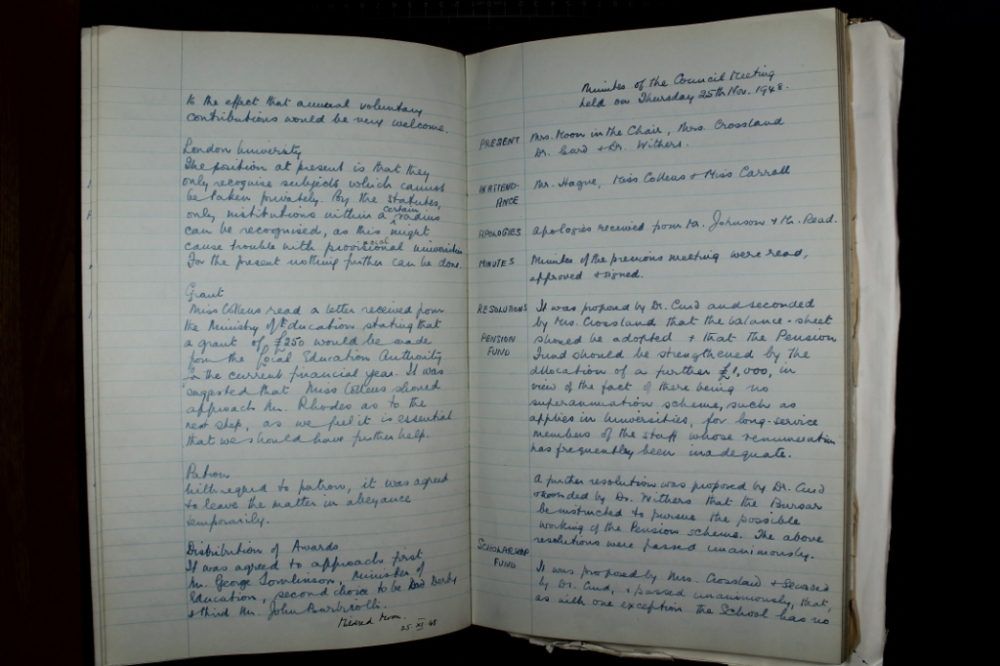 to the effect that annual voluntary
contributions would be very welcome.
London University
The position at present is that they
only recognise subjects which cannot
be taken privately. By the statutes,
only institutions within a certain radius
can be recognised, as this might
cause trouble with provincial universities
For the present nothing further can be done.
Grant
Miss Collens read a letter received from
the Ministry of Education stating that
a grant of £250 would be made
from the Local Education Authority
in the current financial year. It was
suggested that Miss Collens should
approach Mr. Rhodes as to the
next step, as we feel it is essential
that we should have further help.
Patron
With regard to patron, it was agreed
to leave the matter in abeyance
temporarily.
Distribution of Awards
It was agreed to approach first
Mr. George Tomlinson, Minister of
Education, second choice to be Lord Derby
& third Mr. John Barbirolli.
25. XI. 48
Minutes of the Council Meeting
held on Thursday 25th Nov. 1948.
PRESENT Mrs. Moon in the Chair, Mrs. Crossland
Dr. Curd & Dr. Withers.
IN ATTEND- Mr. Hague, Miss Collens & Miss Carroll
ANCE
APOLOGIES Apologies received from Mr. Johnson & Mr. Read.
MINUTES Minutes of the previous meeting were read,
approved & signed.
RESOLUTIONS It was proposed by Dr. Curd and seconded
by Mrs. Crossland that the balance-sheet
PENSION should be adopted & that the Pension
FUND Fund should be strengthened by the
allocation of a further £1,000, in
view of the fact of there being no
superannuation scheme, such as
applies in Universities, for long-service
members of the staff whose remuneration
has frequently been inadequate.
A further resolution was proposed by Dr. Curd
seconded by Dr. Withers that the Bursar
be instructed to pursue the possible
working of the Pension Scheme. The above
resolutions were passed unanimously.
SCHOLARSHIP It was proposed by Mrs. Crossland & seconded
FUND by Dr. Curd, & passed unanimously, that,
as with one exception the School has no